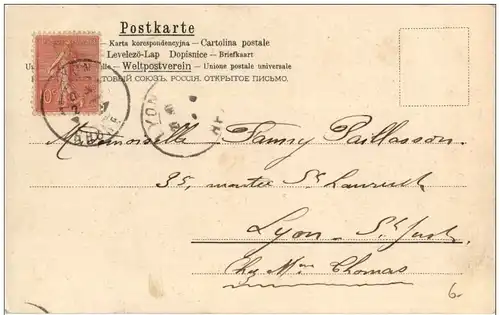 Postkarte
Karta korespondencyjna — Cartolina postale
Levelező-Lap Dopisnice — Briefkaart
Weltpostverein — Unione postale universale
СОЮЗЪ. РОССІЯ. ОТКРЫТОЕ ПИСЬМО.
10
LYON
RHÔNE
LYON
Mademoiselle Fanny Paillasson
35, montée St Laurent
Lyon - St Just
Chez Mme Thomas
6.-